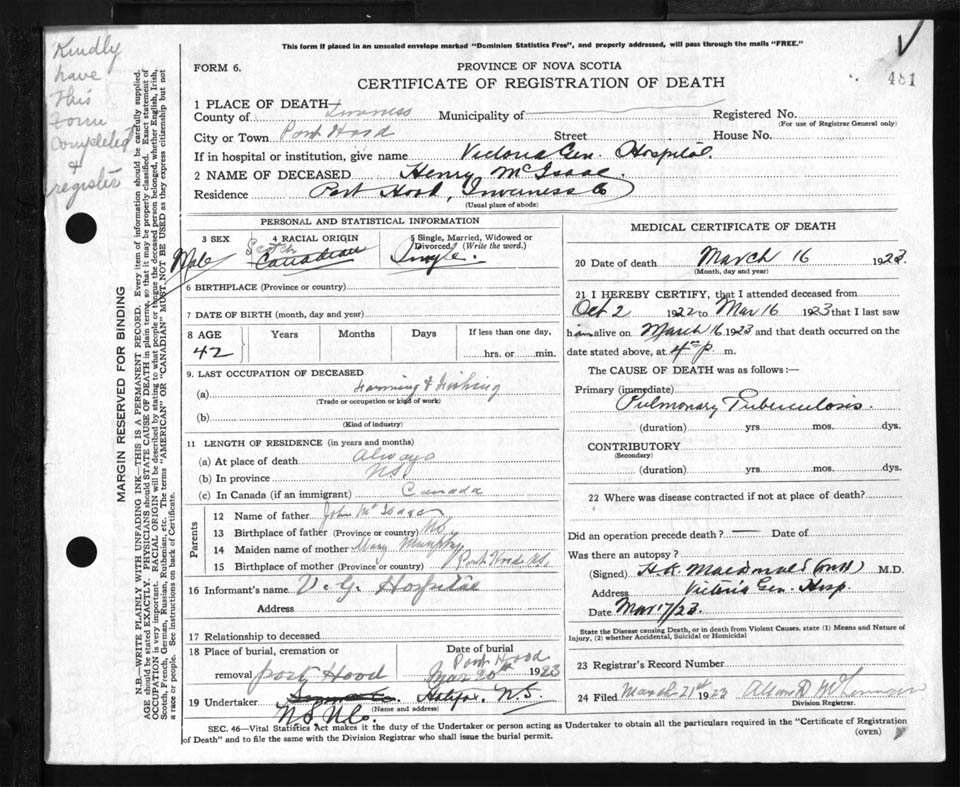 Kindly
have
this
form
completed
&
register
This form if placed in an unsealed envelope marked "Dominion Statistics Free", and properly addressed, will pass through the mails "FREE."
FORM 6.
PROVINCE OF NOVA SCOTIA
CERTIFICATE OF REGISTRATION OF DEATH
481
1 PLACE OF DEATH—
County of Inverness Municipality of Registered No.
(For use of Registrar General only)
City or Town Port Hood Street House No.
If in hospital or institution, give name Victoria Gen. Hospital.
2 NAME OF DECEASED Henry McIsaac
Residence Port Hood, Inverness Co
(Usual place of abode)
PERSONAL AND STATISTICAL INFORMATION
3 SEX Male
4 RACIAL ORIGIN Scotch Canadian
5 Single, Married, Widowed or Divorced (Write the word.) Single.
6 BIRTHPLACE (Province or country)
7 DATE OF BIRTH (month, day and year)
8 AGE Years Months Days If less than one day,
42 hrs. or min.
9. LAST OCCUPATION OF DECEASED
(a) Farming & Fishing
(Trade or occupation or kind of work)
(b)
(Kind of industry)
11 LENGTH OF RESIDENCE (in years and months)
(a) At place of death Always
(b) In province N.S.
(c) In Canada (if an immigrant) Canada
Parents
12 Name of father John McIsaac
13 Birthplace of father (Province or country) N.S.
14 Maiden name of mother Mary Murphy
15 Birthplace of mother (Province or country) Port Hood N.S.
16 Informant's name V. G. Hospital
Address
17 Relationship to deceased
18 Place of burial, cremation or removal Port Hood
Date of burial
Port Hood
Mar 20th 1923
19 Undertaker Halifax N.S.
(Name and address)
N.S. U Co.
MEDICAL CERTIFICATE OF DEATH
20 Date of death March 16 1923.
(Month, day and year)
21 I HEREBY CERTIFY, that I attended deceased from
Oct 2 1922 to Mar 16 1923 that I last saw
him alive on March 16 1923 and that death occurred on
date stated above, at 4 p m.
The CAUSE OF DEATH was as follows:—
Primary (immediate)
Pulmonary Tuberculosis.
(duration) yrs. mos. dys.
CONTRIBUTORY
(Secondary)
(duration) yrs. mos. dys.
22 Where was disease contracted if not at place of death?
Did an operation precede death? — Date of
Was there an autopsy?
(Signed) H.K. MacDonald M.D.
Address Victoria Gen. Hosp
Date Mar 17/23.
State the Disease causing Death, or in death from Violent Causes, state (1) Means and Nature of
Injury, (2) whether Accidental, Suicidal or Homicidal
23 Registrar's Record Number
24 Filed March 21st 1923
Division Registrar.
SEC. 46—Vital Statistics Act makes it the duty of the Undertaker or person acting as Undertaker to obtain all the particulars required in the "Certificate of Registration
of Death" and to file the same with the Division Registrar who shall issue the burial permit.
(OVER)
MARGIN RESERVED FOR BINDING
N.B.—WRITE PLAINLY WITH UNFADING INK—THIS IS A PERMANENT RECORD. Every item of information should be carefully supplied.
AGE should be stated EXACTLY. PHYSICIANS should STATE CAUSE OF DEATH in plain terms, so that it may be properly classified. Exact statement of
OCCUPATION is very important. RACIAL ORIGIN will be described by stating to what people or tongue the deceased person belonged, whether English, Irish,
Scotch, French, German, Russian, Ruthenian, etc. The terms "AMERICAN" OR "CANADIAN" MUST NOT BE USED as they express citizenship but not
a race or people. See instructions on back of Certificate.